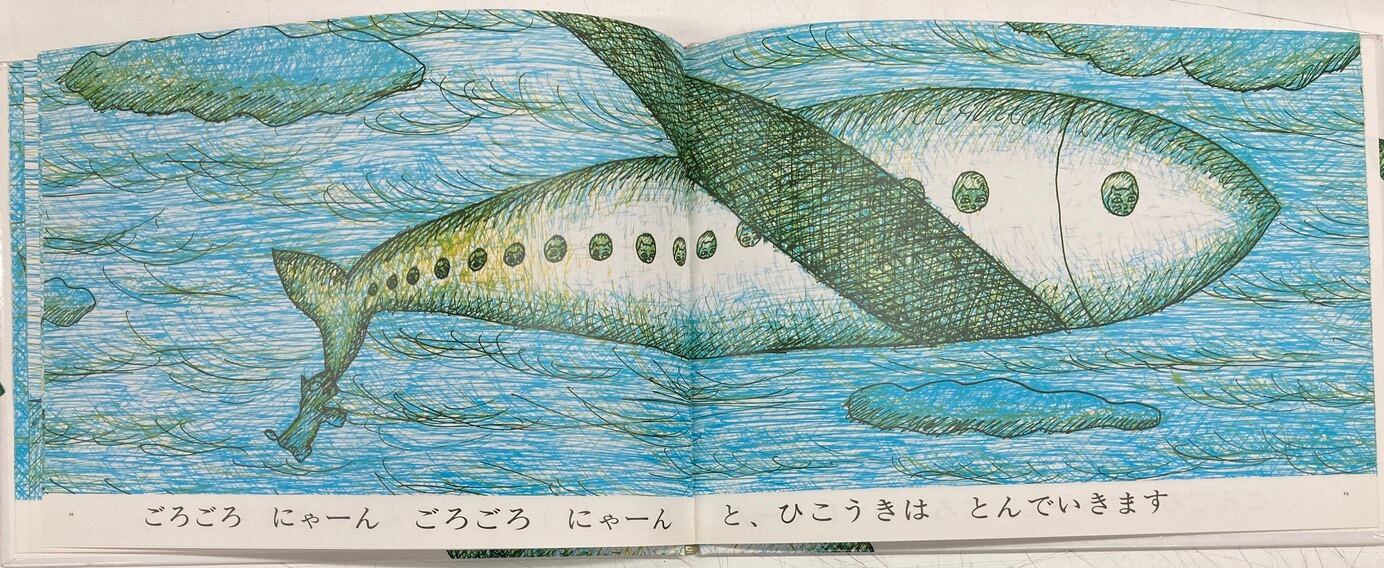 ごろごろ　にゃーん　ごろごろ　にゃーん　と、ひこうきは　とんでいきます